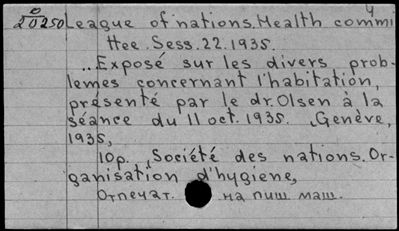 D
20250 League of nations. Health commi
ttee. Sess. 22. 1935.
.. Exposé sur les divers prob-
lemes concernant l'habitation,
présenté par le dr. Olsen à la
séance du 11 oct. 1935. Genève,
1935,
10p. Société des nations. Or-
ganisation d'hygiene,
Отпечат. на пиш маш.